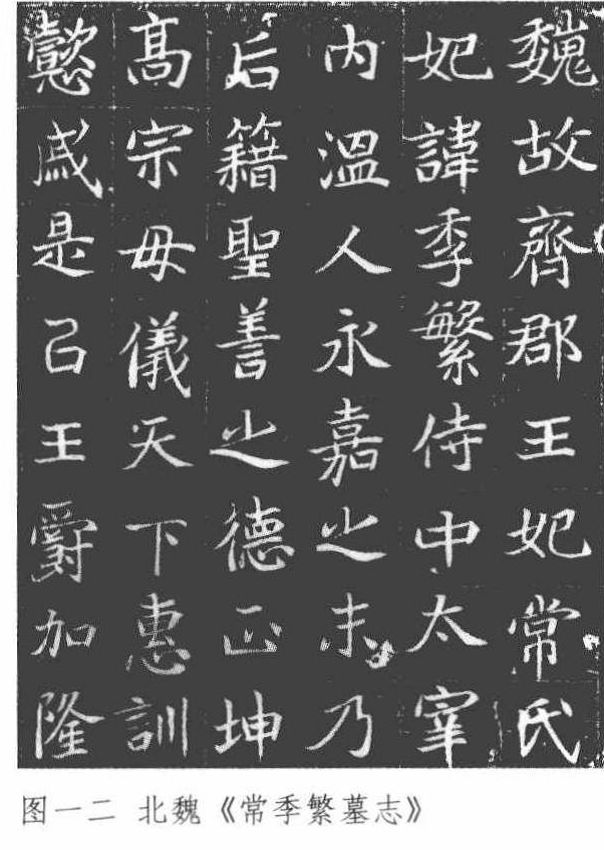 魏故齊郡王妃常氏
妃諱季繁侍中太宰
内温人永嘉之末乃
后籍聖善之德正坤
髙宗毋儀天下惠訓
懿戚是以王爵加隆
图一二 北魏《常季繁墓志》